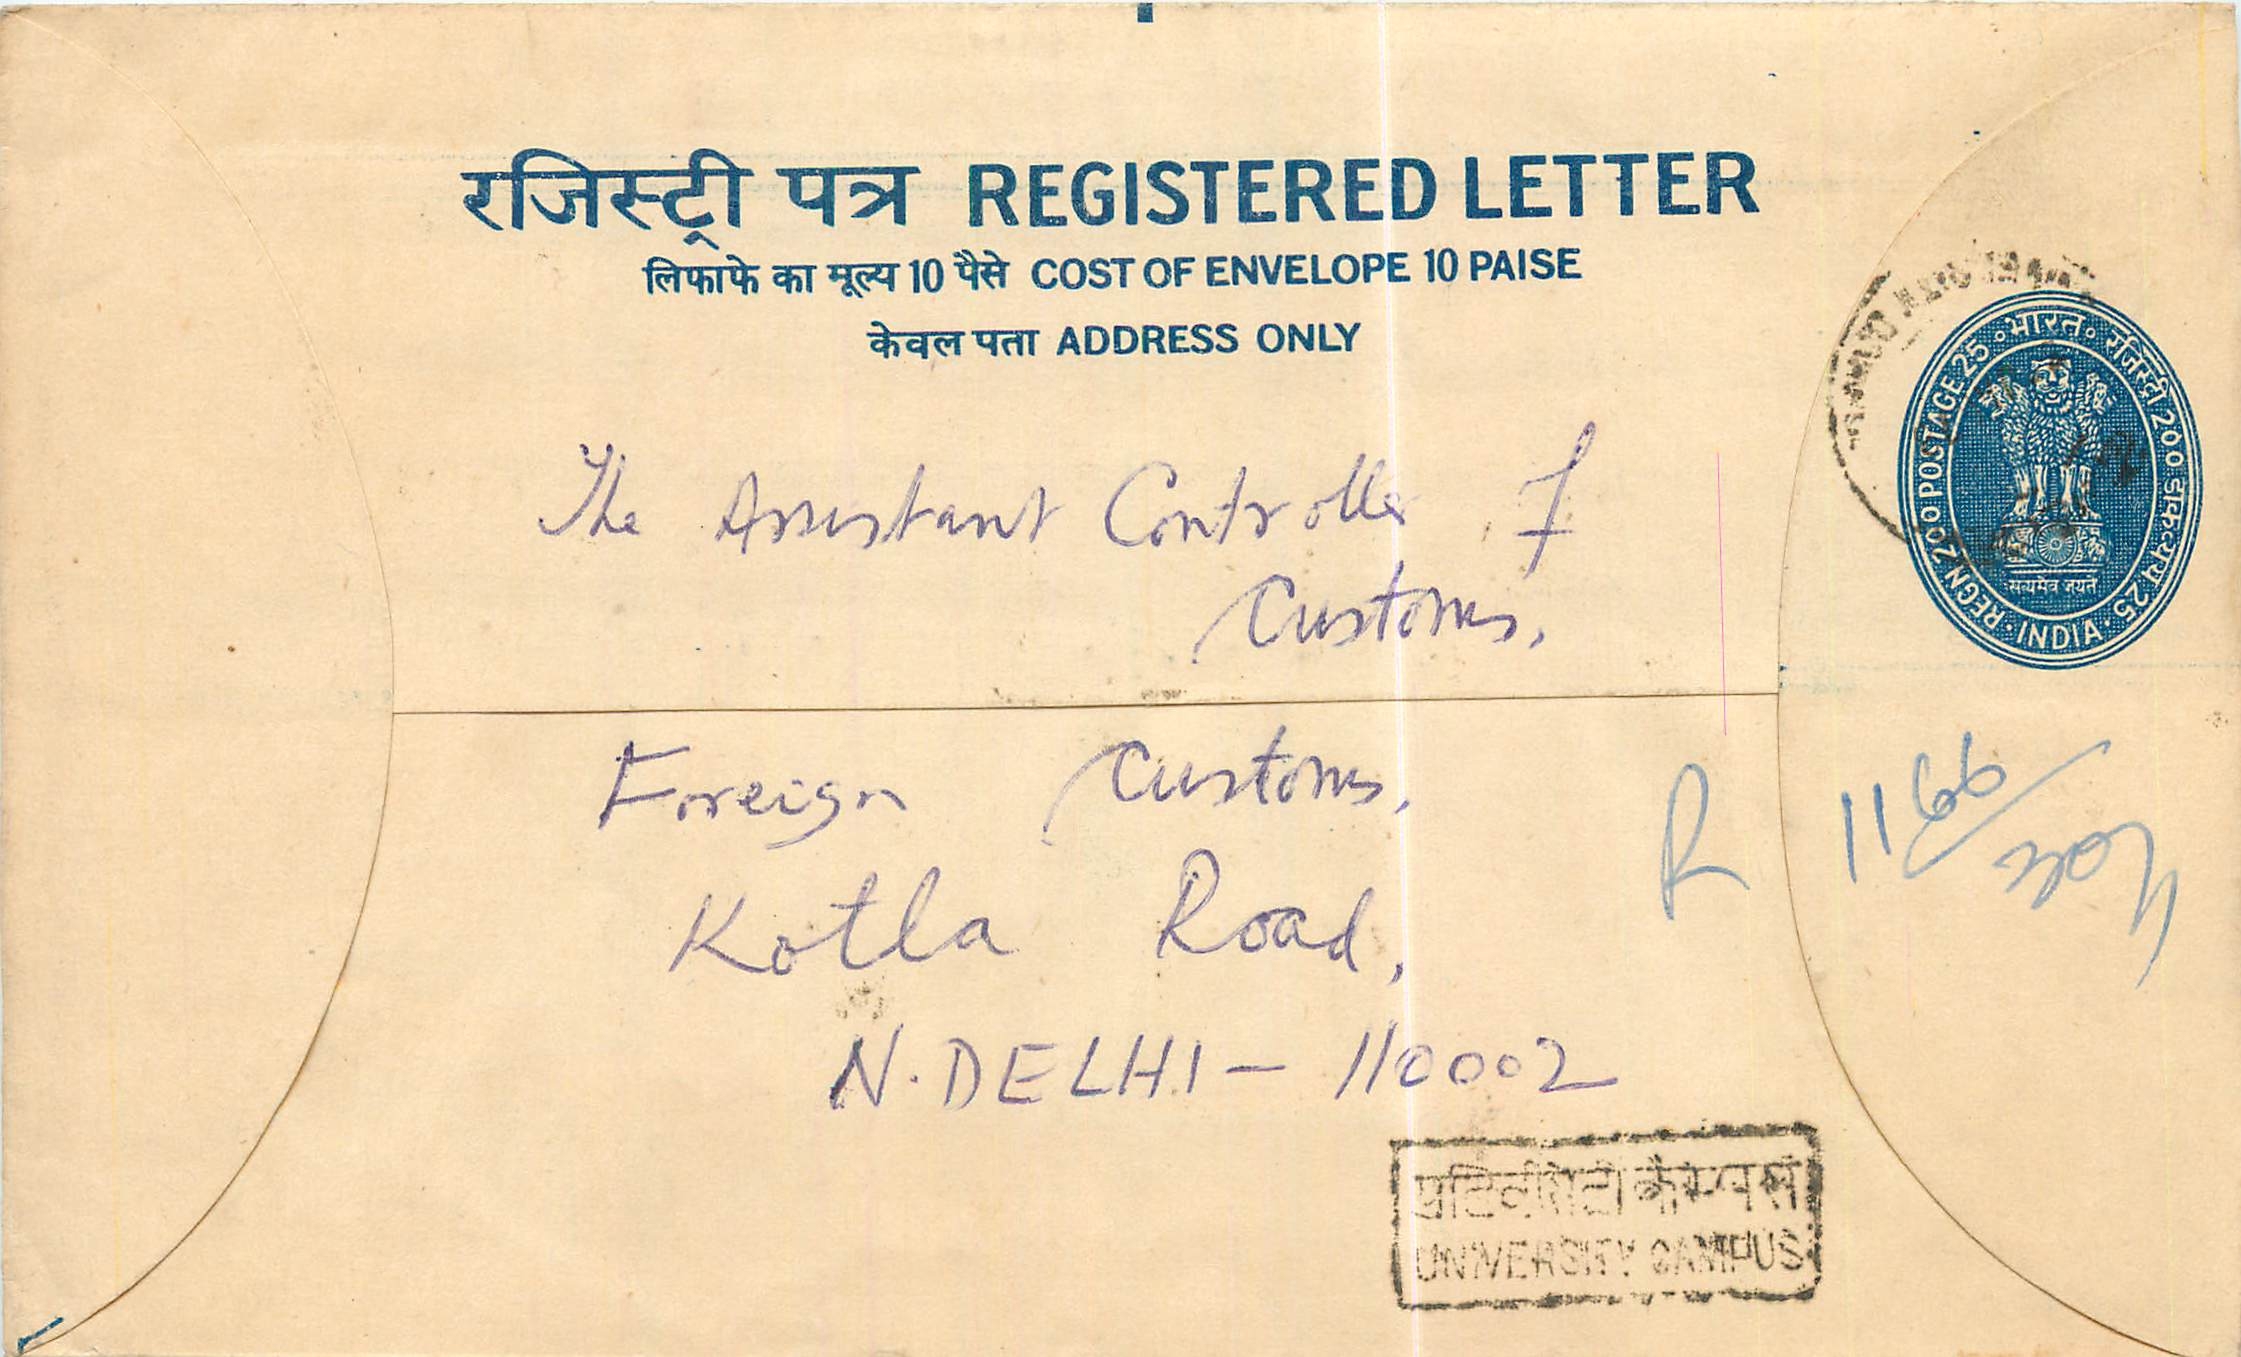 रजिस्ट्री पत्र REGISTERED LETTER
लिफाफे का मूल्य 10 पैसे COST OF ENVELOPE 10 PAISE
केवल पता ADDRESS ONLY
भारत
रजिस्ट्री 200 डाकव्यय 25
REGN 200 POSTAGE 25
सत्यमेव जयते
INDIA
The Assistant Controller of
Customs.
Foreign Customs,
Kotla Road,
N. DELHI - 110002
R 1166
UNIVERSITY CAMPUS